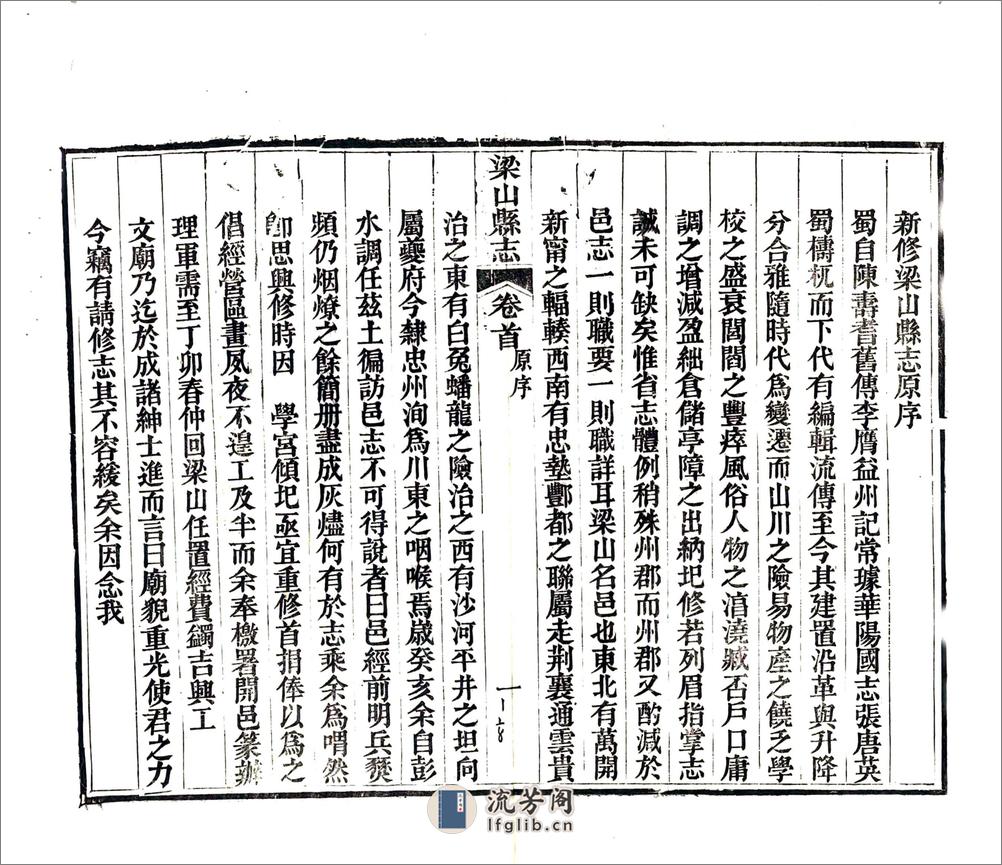 新修梁山縣志原序
蜀自陳壽耆舊傳李膺益州記常璩華陽國志張唐英
蜀檮杌而下代有編輯流傳至今其建置沿革與升降
分合雅隨時代爲變遷而山川之險易物產之饒乏學
校之盛衰閭閻之豐瘁風俗人物之淯澆臧否戶口庸
調之增減盈絀倉儲亭障之出納圮修若列眉指掌志
誠未可缺矣惟省志體例稍殊州郡而州郡又酌減於
邑志一則職要一則職詳耳梁山名邑也東北有萬開
新甯之輻輳西南有忠墊酆都之聯屬走荆襄通雲貴
梁山縣志
卷首
原序
一
治之東有白兔蟠龍之險治之西有沙河平井之坦向
屬夔府今隸忠州洵爲川東之咽喉焉歲癸亥余自彭
水調任茲土徧訪邑志不可得說者曰邑經前明兵燹
頻仍烟燎之餘簡册盡成灰燼何有於志乘余爲喟然
卽思興修時因 學宮傾圮亟宜重修首捐俸以爲之
倡經營區畫夙夜不遑工及半而余奉檄署開邑篆辦
理軍需至丁卯春仲回梁山任置經費蠲吉興工
文廟乃迄於成諸紳士進而言曰廟貌重光使君之力
今竊有請修志其不容緩矣余因念我
流芳阁
lfglib.cn